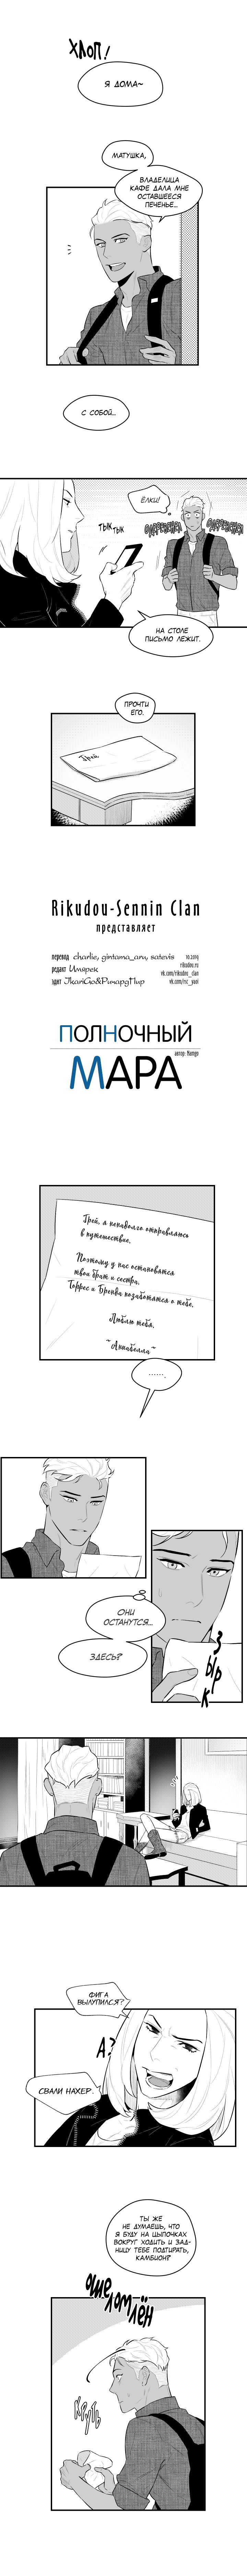 ХЛОП!
Я ДОМА~
МАТУШКА,
ВЛАДЕЛИЦА
КАФЕ ДАЛА МНЕ
ОСТАВШЕЕСЯ
ПЕЧЕНЬЕ...
С СОБОЙ...
ЁЛКИ!
ТЫК
ТЫК
НА СТОЛЕ
ПИСЬМО ЛЕЖИТ.
ПРОЧТИ
ЕГО.
Грей
Rikudou-Sennin Clan
представляет
перевод charlie, gintama_aru, satevis
10.2019
редакт Имярек
rikudou.ru
vk.com/rikudou_clan
эдит IkariGo&РичардПир
vk.com/rsc_yaoi
ПОЛНОЧНЫЙ
автор: Mango
МАРА
Грей, я ненадолго отправляюсь
в путешествие.
Поэтому у нас остановятся
твои брат и сестра.
Торрес и Бренва позаботятся о тебе.
Люблю тебя.
~Аннабелла~
.......
ОНИ
ОСТАНУТСЯ...
ЗДЕСЬ?
ЗЫРК
ФИГА
ВЫЛУПИЛСЯ?
А?
СВАЛИ НАХЕР.
ТЫ ЖЕ
НЕ ДУМАЕШЬ, ЧТО
Я БУДУ НА ЦЫПОЧКАХ
ВОКРУГ ХОДИТЬ И ЗАД-
НИЦУ ТЕБЕ ПОДТИРАТЬ,
КАМБИОН?
ОШЕЛОМЛЁН
КРУТЬ